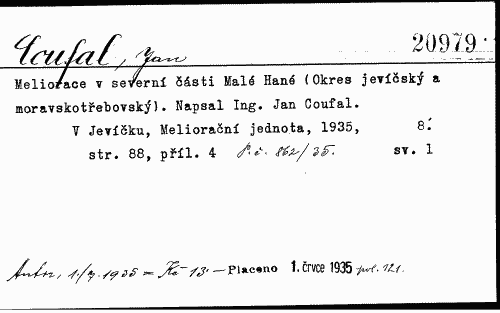 Coufal, Jan
20979.
Meliorace v severní části Malé Hané (Okres jevíčský a
moravskotřebovský). Napsal Ing. Jan Coufal.
V Jevíčku, Meliorační jednota, 1935, 8.
str. 88, příl. 4 P.č. 862/35. sv. 1
Autor, 1./7. 1935 = Kč 13·— Placeno 1. črvce 1935 pol. 121.